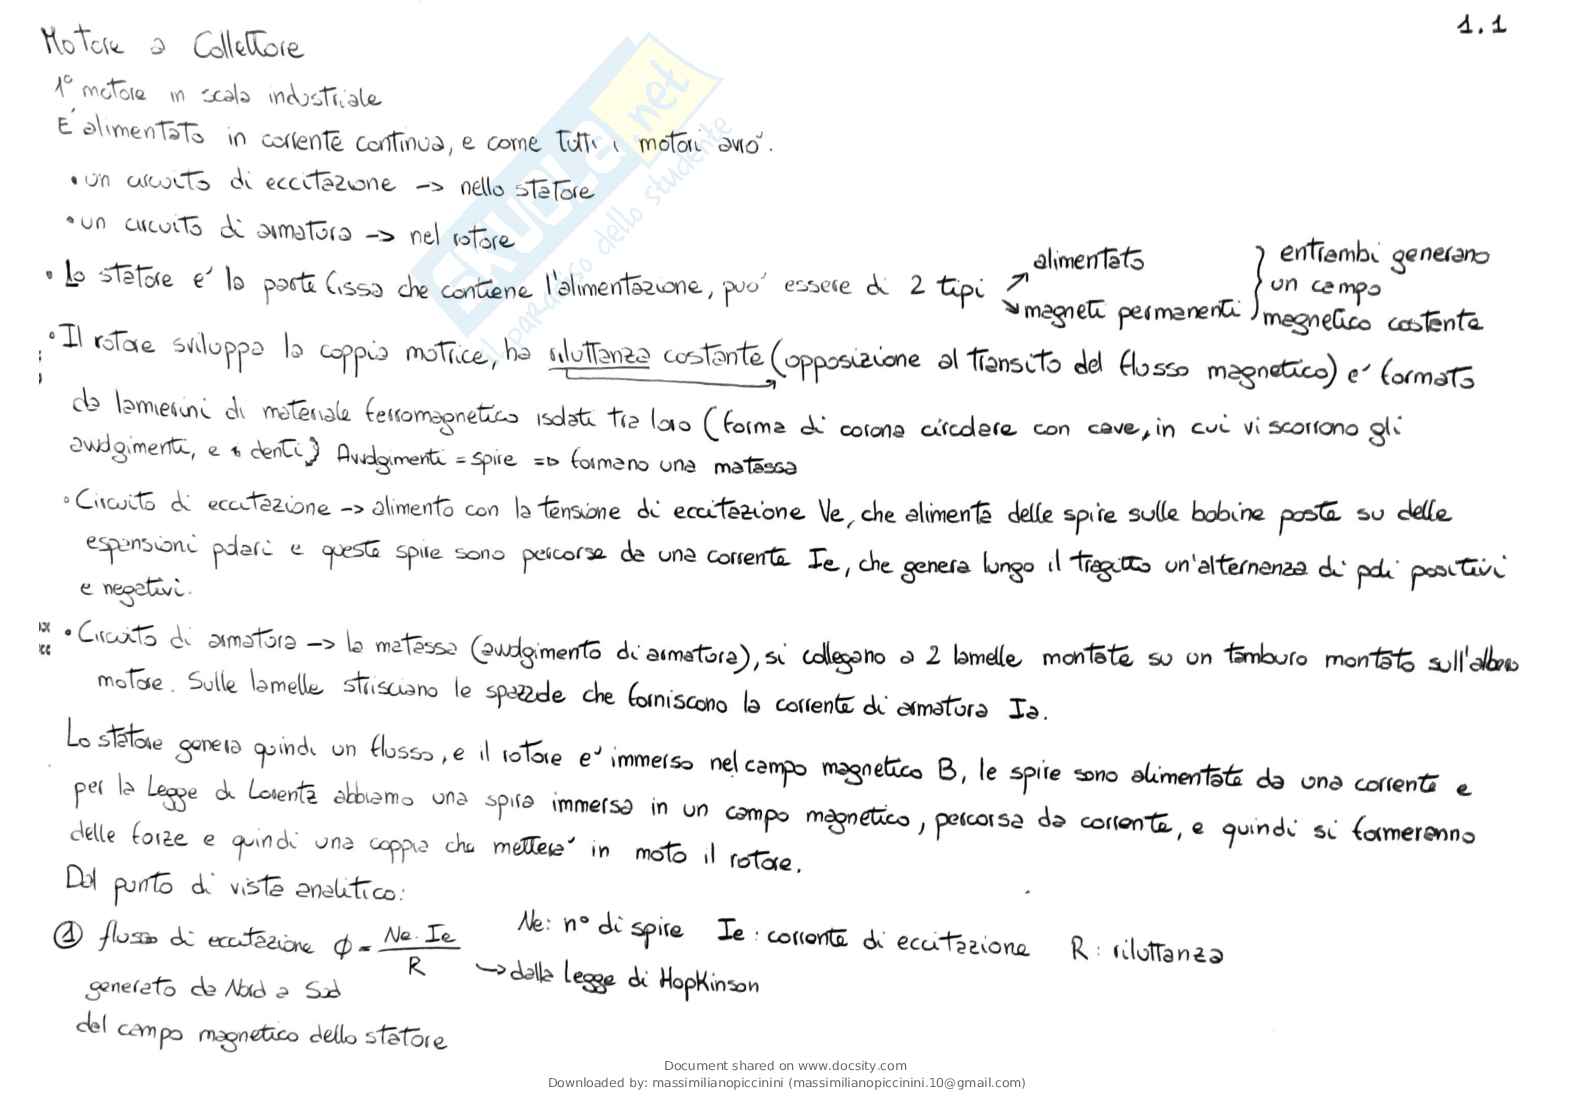 1.1
Motore a Collettore
1° motore in scala industriale
E' alimentato in corrente continua, e come tutti i motori avrò:
• un circuito di eccitazione -> nello statore
• un circuito di armatura -> nel rotore
• Lo statore e' la parte fissa che contiene l'alimentazione, puo' essere di 2 tipi
alimentato
magneti permanenti
} entrambi generano
un campo
magnetico costante
• Il rotore sviluppa la coppia motrice, ha riluttanza costante (opposizione al transito del flusso magnetico) e' formato
da lamierini di materiale ferromagnetico isolati tra loro (forma di corona circolare con cave, in cui vi scorrono gli
avvolgimenti, e denti) Avvolgimenti = spire => formano una matassa
• Circuito di eccitazione -> alimento con la tensione di eccitazione Ve, che alimenta delle spire sulle bobine poste su delle
espansioni polari e queste spire sono percorse da una corrente Ie, che genera lungo il tragitto un'alternanza di poli positivi
e negativi.
• Circuito di armatura -> la matassa (avvolgimento di armatura), si collegano a 2 lamelle montate su un tamburo montato sull'albero
motore. Sulle lamelle strisciano le spazzole che forniscono la corrente di armatura Ia.
Lo statore genera quindi un flusso, e il rotore e' immerso nel campo magnetico B, le spire sono alimentate da una corrente e
per la Legge di Lorentz abbiamo una spira immersa in un campo magnetico, percorsa da corrente, e quindi si formeranno
delle forze e quindi una coppia che mettera' in moto il rotore.
Dal punto di vista analitico:
① flusso di eccitazione ϕ = Ne · Ie / R
Ne: n° di spire Ie: corrente di eccitazione R: riluttanza
-> dalla legge di Hopkinson
generato da Nord a Sud
del campo magnetico dello statore
SKUOLA.net
il paradiso dello studente
Document shared on www.docsity.com
Downloaded by: massimilianopiccinini (massimilianopiccinini.10@gmail.com)